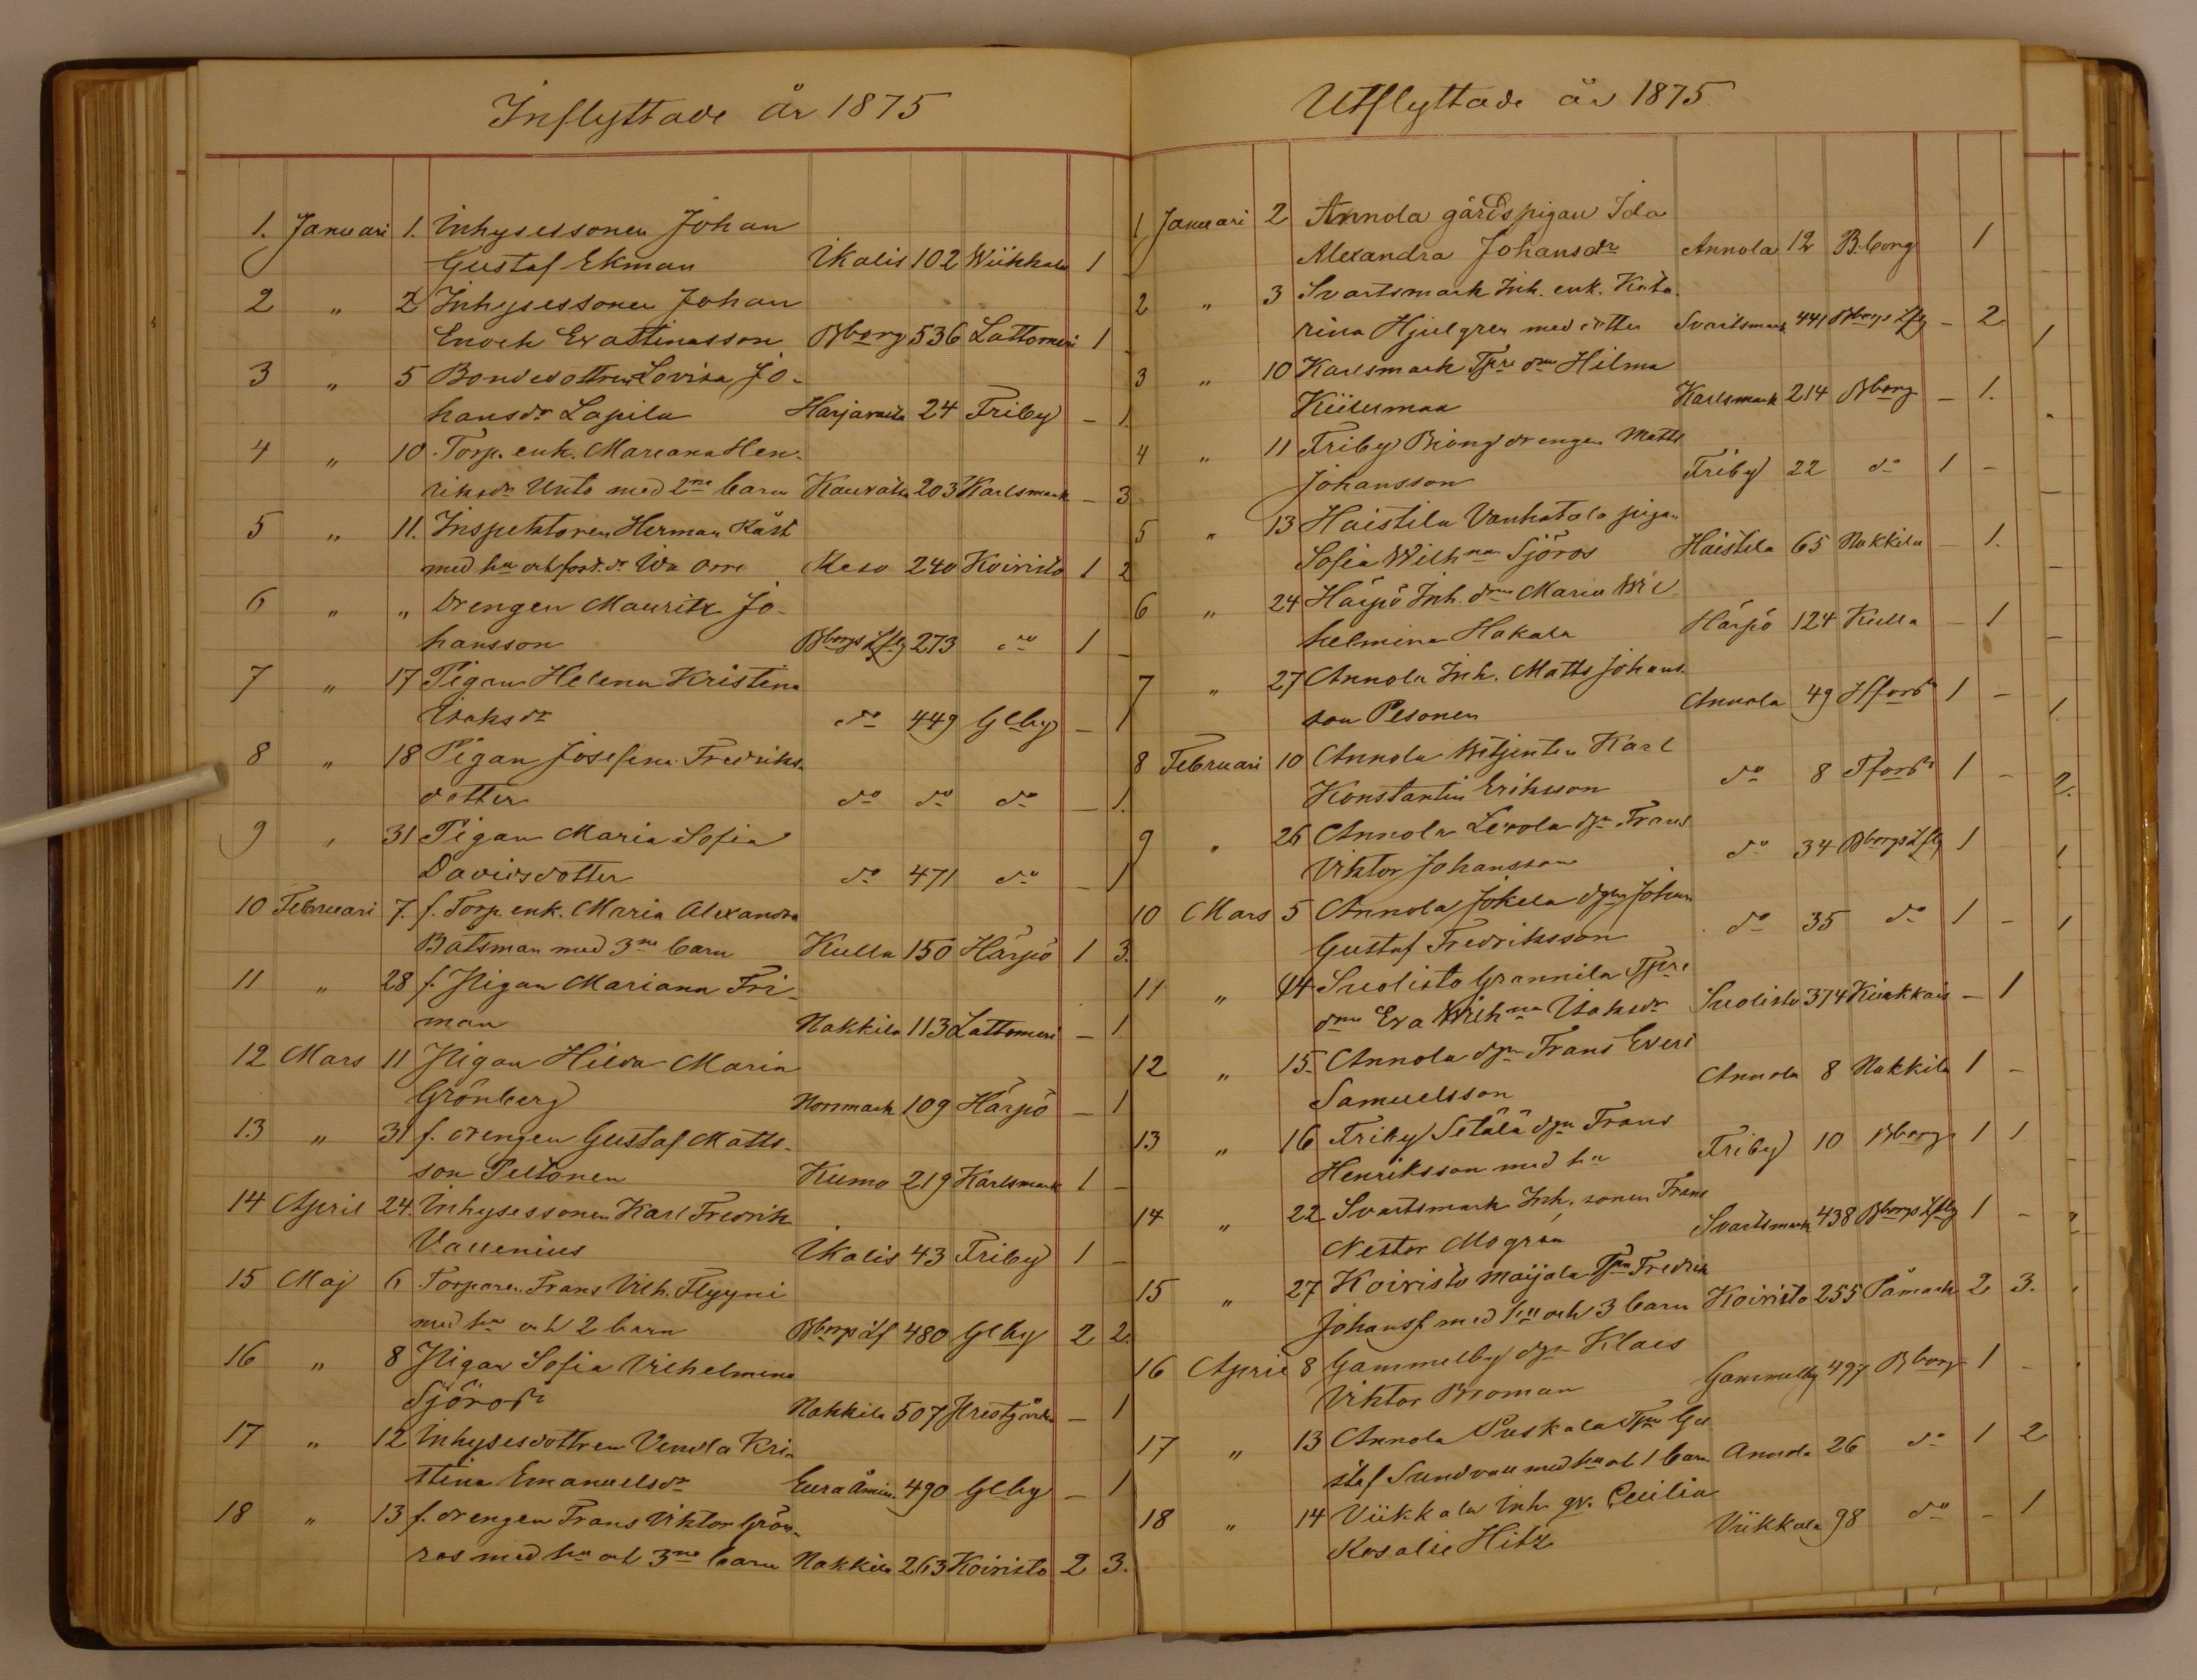 Inflyttade år 1875
1. Januari 1. Inhysessonen Johan
Gustaf Ekman Ikalis 102 Wiikkala 1
2 " 2 Inhysessonen Johan
Enoch Erastinasson Bborg 536 Lattomeri 1 -
3 " 5 Bondedottren Lovisa Jo-
hansdr Lapila Harjavalta 24 Friby - 1.
4 " 10. Torp. enk. Mareana Hen-
riksdr Unto med 2ne barn Kauvatsa 203 Karlsmark - 3
5 " 11. Inspektoren Herman Käst
med hu och fosd. dr Ida Orre 240 Koiristo 1 2
6 " " Drengen Mauritz Jo-
hansson Bborgs Lfg 273 do 1 -
7 " 17 Pigan Helena Kristina
Isaksdr do 449 Glby - 1
8 " 18 Pigan Josefina Fredriks-
dotter do do do - 1.
9 " 31 Pigan Maria Sofia
Davidsdotter do 471 do - 1
10 Februari 7. f. Torp. enk. Maria Alexandra
Båtsman med 3ne barn Kulla 150 Härpö 1 3.
11 " 28 f. Pigan Mariana Fri-
man Nakkila 113 Lattomeri - 1.
12 Mars 11 Pigan Hilda Maria
Grönberg Norrmark 109 Härpö - 1
13 " 31 f. drengen Gustaf Matts-
son Peltonen Kumo 219 Karlsmark 1 -
14 April 24. Inhysessonen Karl Fredrik
Vallenius Ikalis 43 Friby 1 -
15 Maj 6 Torparen Frans Vilh. Flyyni
med hu och 2 barn 480 Glby 2 2.
16 " 8 Pigan Sofia Vilhelmina
Sjöros Nakkila 507 - 1
17 " 12 Inhysesdottren Vendla Kri-
stina Emanuelsdr Eura Åmin. 490 Glby - 1
18 " 13 f. drengen Frans Viktor Grön-
ros med hu och 3ne barn Nakkila 263 Koiristo 2 3.
Utflyttade år 1875
1 Januari 2 Annola gårds pigan Ida
Alexandra Johansdr Annola 12 B.borg 1
2 " 3 Svartsmark Inh. enk. Kata-
rina Hjulgren med dotter Svartsmark 441 Bborgs Lfg - 2
3 " 10 Karlsmark Tpre dtr Hilma
Kiilusmaa Karlsmark 214 Bborg - 1.
4 " 11 Friby Biong drengen Matts
Johansson Friby 22 do 1 -
5 " 13 Haistila Vanhatalo pigan
Sofia Wilhna Sjöros Haistila 65 Nakkila - 1.
6 " 24 Härpö Inh. dtr Maria Wil-
helmina Hakala Härpö 124 Kulla - 1
7 " 27 Annola Inh. Matts Johans-
son Pesonen Annola 49 Hfors 1 -
8 Februari 10 Annola Betjenten Karl
Konstantin Eriksson do 8 Tfors 1 -
9 " 26 Annola Levola dgn Frans
Viktor Johansson do 34 Bborgs Lfg 1
10 Mars 5 Annola Jokela dgn Johan
Gustaf Fredriksson do 35 do 1 -
11 " 14 Suolisto Grannila Tpre
dtr Eva Wilhna Isaksdr Suolisto 374 Kiukkais - 1
12 " 15. Annola dgn Frans Evert
Samuelsson Annola 8 Nakkila 1 -
13 " 16 Friby Setälä dgn Frans
Henriksson med hu Friby 10 Bborg 1 1
14 " 22 Svartsmark Inh. sonen Frans
Nestor Mogrén Svartsmark 438 Bborgs Lfg 1 -
15 " 27 Koiristo Maijala Tpn Fredrik
Johanss. med hu och 3 barn Koiristo 255 Påmark 2 3.
16 April 8 Gammelby dgn Klaes
Viktor Broman Gammelby 497 Bborg 1 -
17 " 13 Annola Puskala Tpn Gu
staf Sundvall med hu och 1 barn Annola 26 do 1 2
18 " 14 Viikkala Inh. qv. Cecilia
Rosalie Hitz Viikkala 98 do - 1